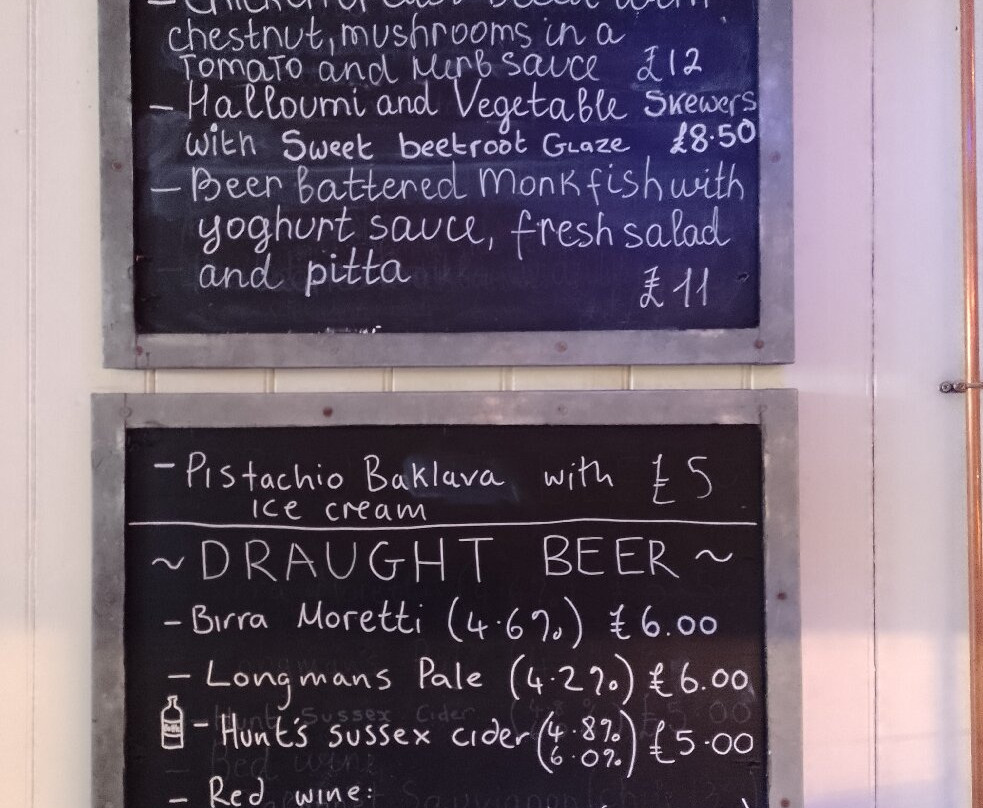 chestnut, mushrooms in a
Tomato and Herb sauce £12
- Halloumi and Vegetable Skewers
with Sweet beetroot Glaze £8.50
- Beer battered Monkfish with
yoghurt sauce, fresh salad
and pitta
£11
- Pistachio Baklava with £5
ice cream
~ DRAUGHT BEER ~
- Birra Moretti (4.6%) £6.00
- Longmans Pale (4.2%) £6.00
- Hunt's sussex cider (4.8% 6.0%) £5.00
- Red wine: